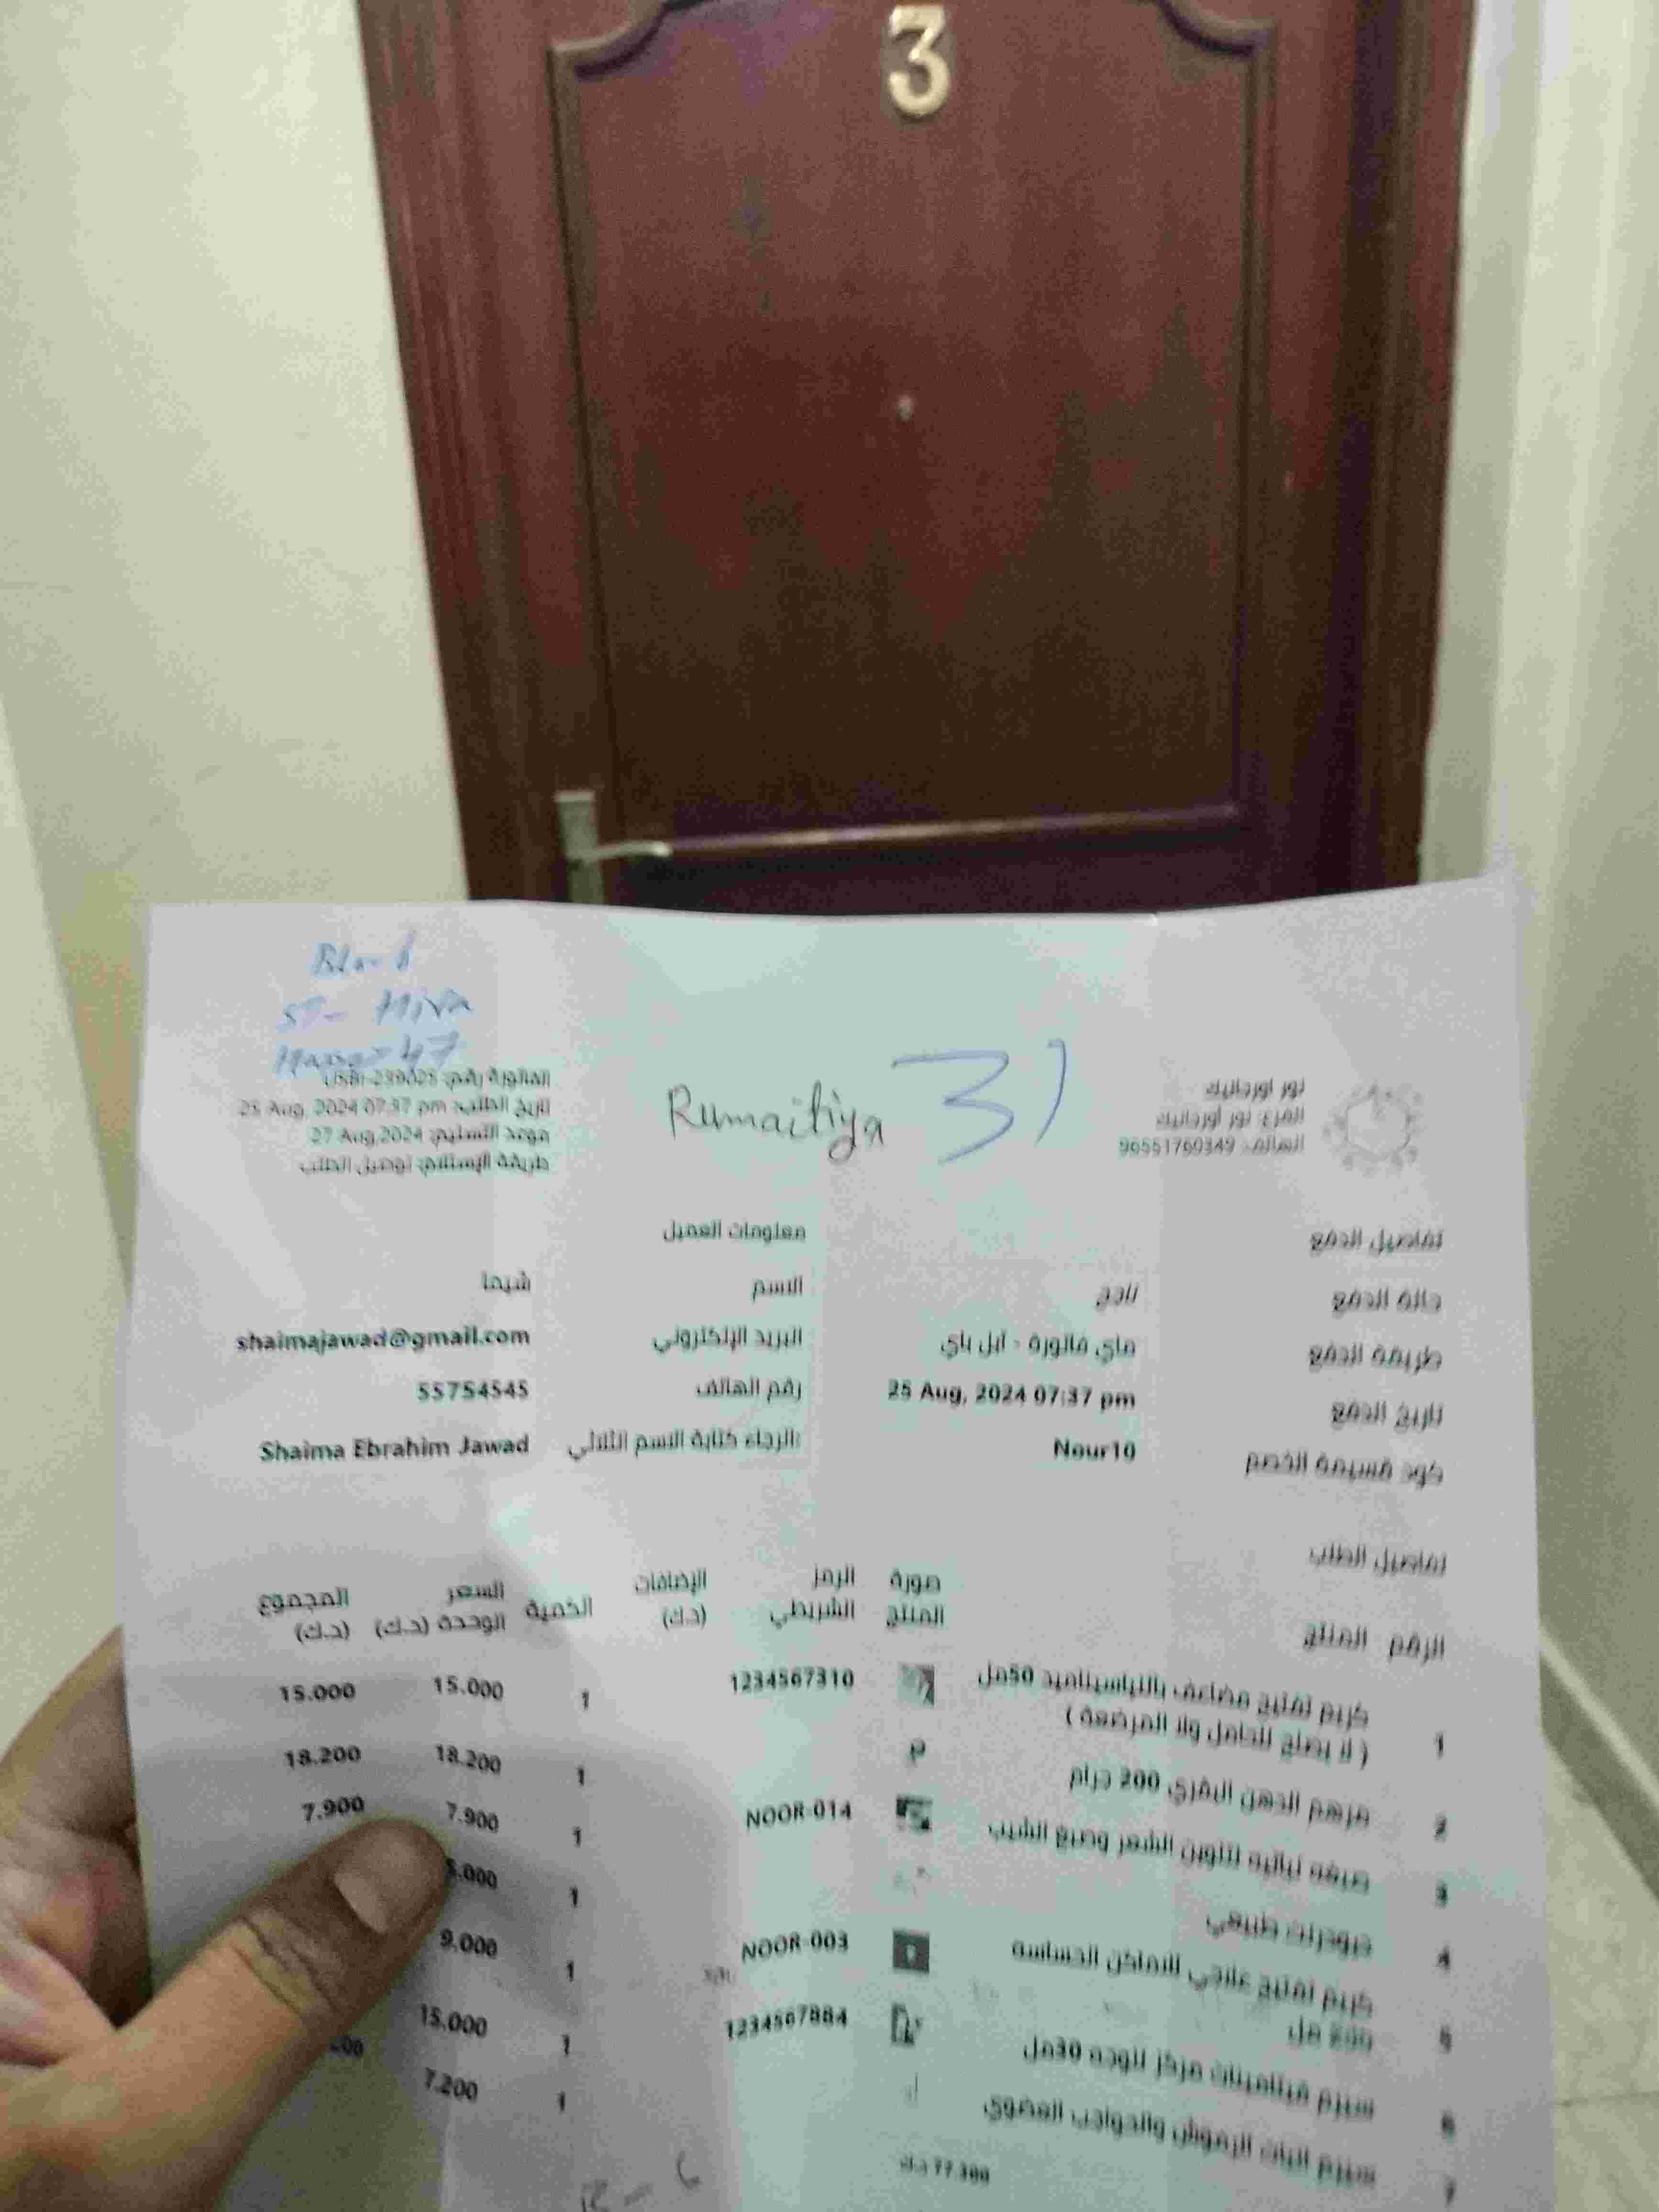 3
Rumaitiya 31
نور اورجانيك
الفرع: نور اورجانيك
الهاتف: 96551760349
25 Aug, 2024 07:37 pm تاريخ الطلب:
موعد التسليم: 27 Aug,2024
طريقة الإستلام: توصيل الطلب
تفاصيل الدفع
حالة الدفع ناجح
طريقة الدفع ماي فاتورة - أبل باي
تاريخ الدفع 25 Aug, 2024 07:37 pm
كود قسيمة الخصم Nour10
معلومات العميل
الاسم شيما
البريد الإلكتروني shaimajawad@gmail.com
رقم الهاتف 55754545
الرجاء كتابة الاسم الثلاثي: Shaima Ebrahim Jawad
تفاصيل الطلب
الرقم المنتج صورة المنتج الرمز الشريطي الإضافات (د.ك) الكمية السعر الوحدة (د.ك) المجموع (د.ك)
1 كريم تفتيح مضاعف 50مل 1234567310 1 15.000 15.000
( لا يصلح للحامل ولا المرضعة )
2 مرهم الدهن البقري 200 جرام 1 18.200 18.200
3 صبغة نباتية لتلوين الشعر وصبغ الشيب NOOR-014 1 7.900 7.900
4 طبيعي 1
5 كريم تفتيح علاجي للاماكن الحساسة NOOR-003 1 9.000
200 مل
6 سيرم فيتامينات مركز للوجه 30مل 1234567884 1 15.000
7 سيرم انبات الرموش والحواجب العضوي 1 7.200